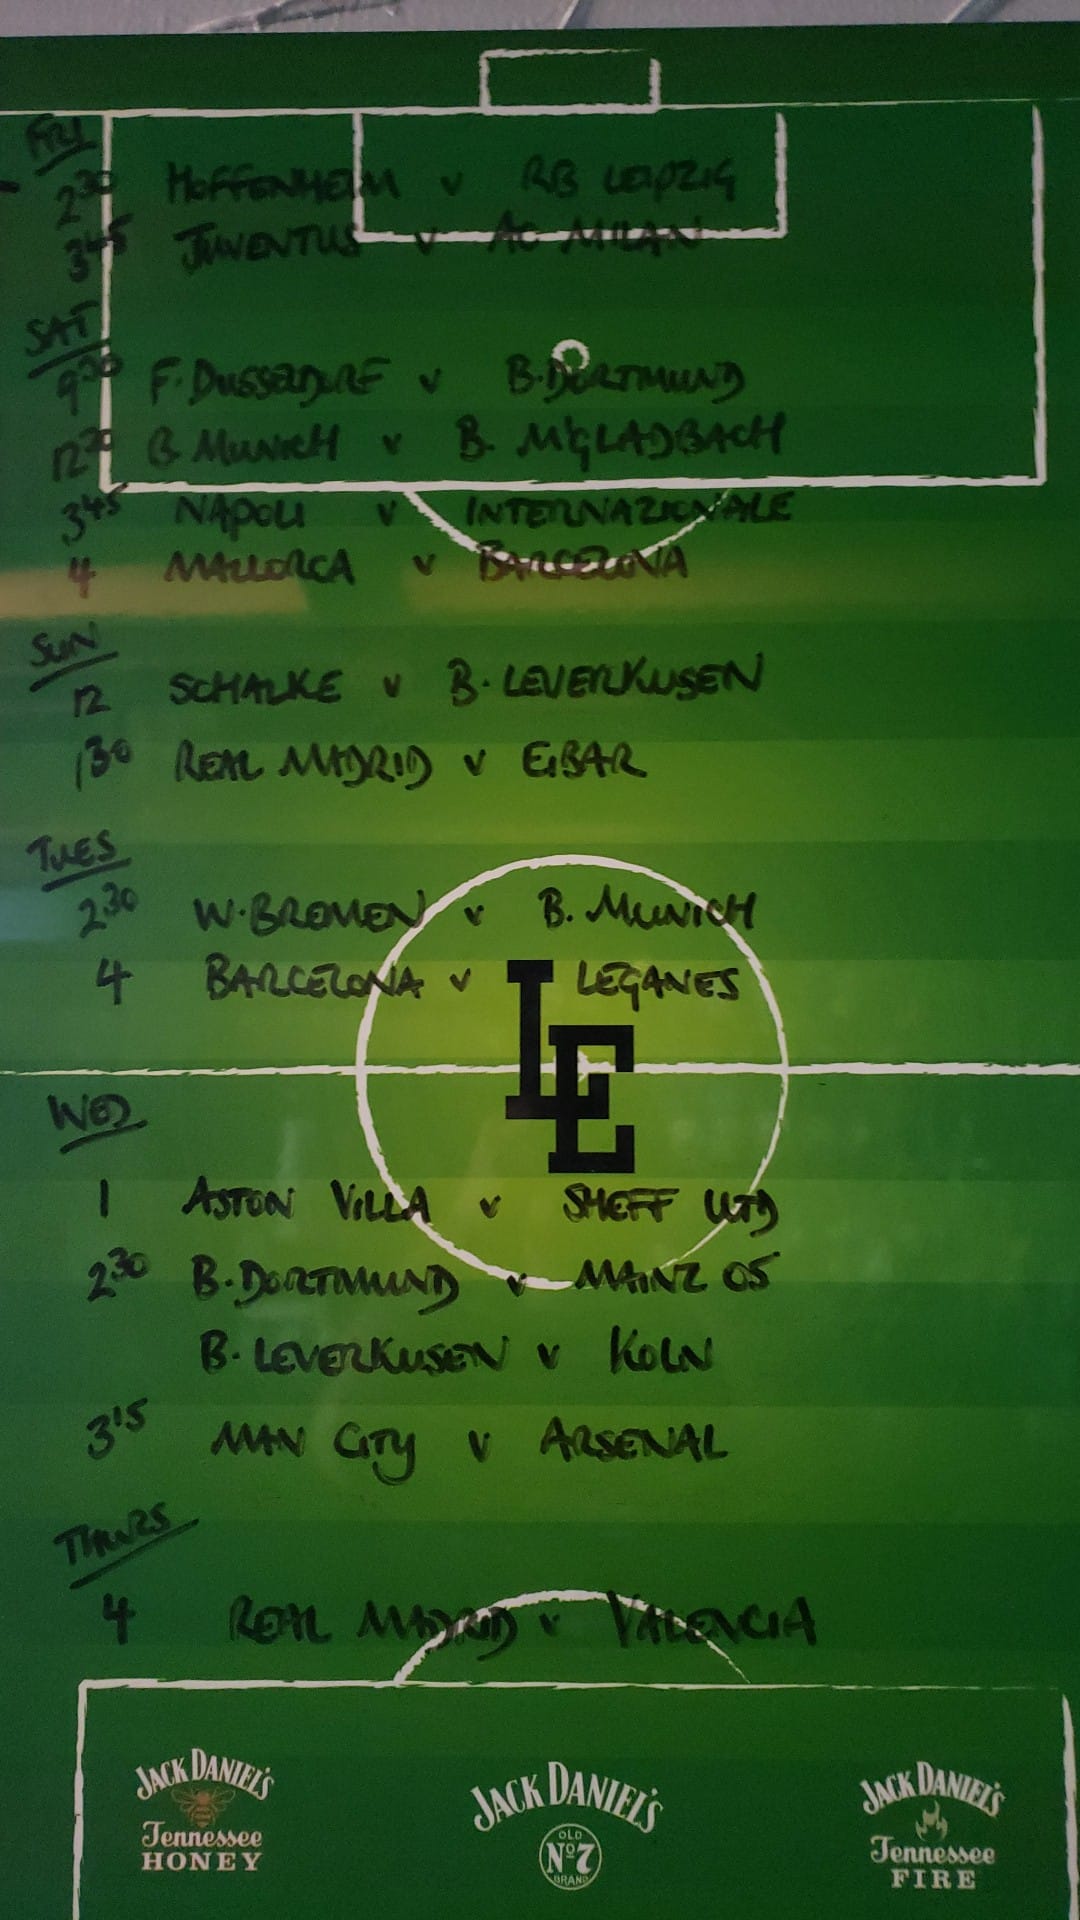 FRI
2 30 HOFFENHEIM v RB LEIPZIG
3 45 JUVENTUS v AC MILAN
SAT
9 30 F. DUSSELDORF v B. DORTMUND
12 30 B. MUNICH v B. M'GLADBACH
3 45 NAPOLI v INTERNAZIONALE
4 MALLORCA v BARCELONA
SUN
12 SCHALKE v B. LEVERKUSEN
1 30 REAL MADRID v EIBAR
TUES
2 30 W. BREMEN v B. MUNICH
4 BARCELONA v LEGANES
LE
WED
1 ASTON VILLA v SHEFF UTD
2 30 B. DORTMUND v MAINZ 05
B. LEVERKUSEN v KOLN
3 15 MAN CITY v ARSENAL
THURS
4 REAL MADRID v VALENCIA
JACK DANIEL'S
Tennessee
HONEY
JACK DANIEL'S
OLD
No 7
BRAND
JACK DANIEL'S
Tennessee
FIRE